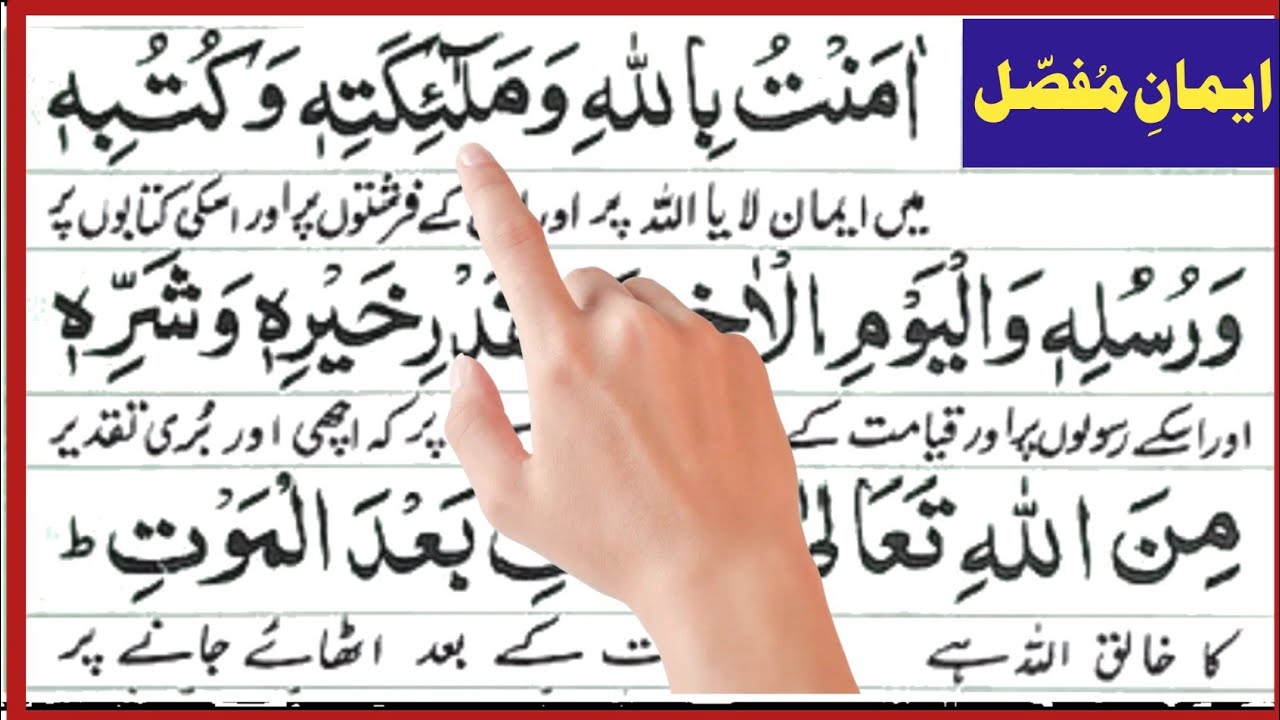 ایمانِ مُفصّل
اٰمَنْتُ بِاللّٰهِ وَمَلٰٓئِكَتِهٖ وَكُتُبِهٖ
میں ایمان لایا اللہ پر اور کے فرشتوں پر اور اسکی کتابوں پر
وَرُسُلِهٖ وَالْيَوْمِ خَيْرِهٖ وَشَرِّهٖ
اور اسکے رسولوں پر اور قیامت کے پر کہ اچھی اور بُری تقدیر
مِنَ اللّٰهِ تَعَالٰى بَعْدَ الْمَوْتِ ؕ
کا خالق اللہ ہے کے بعد اٹھائے جانے پر